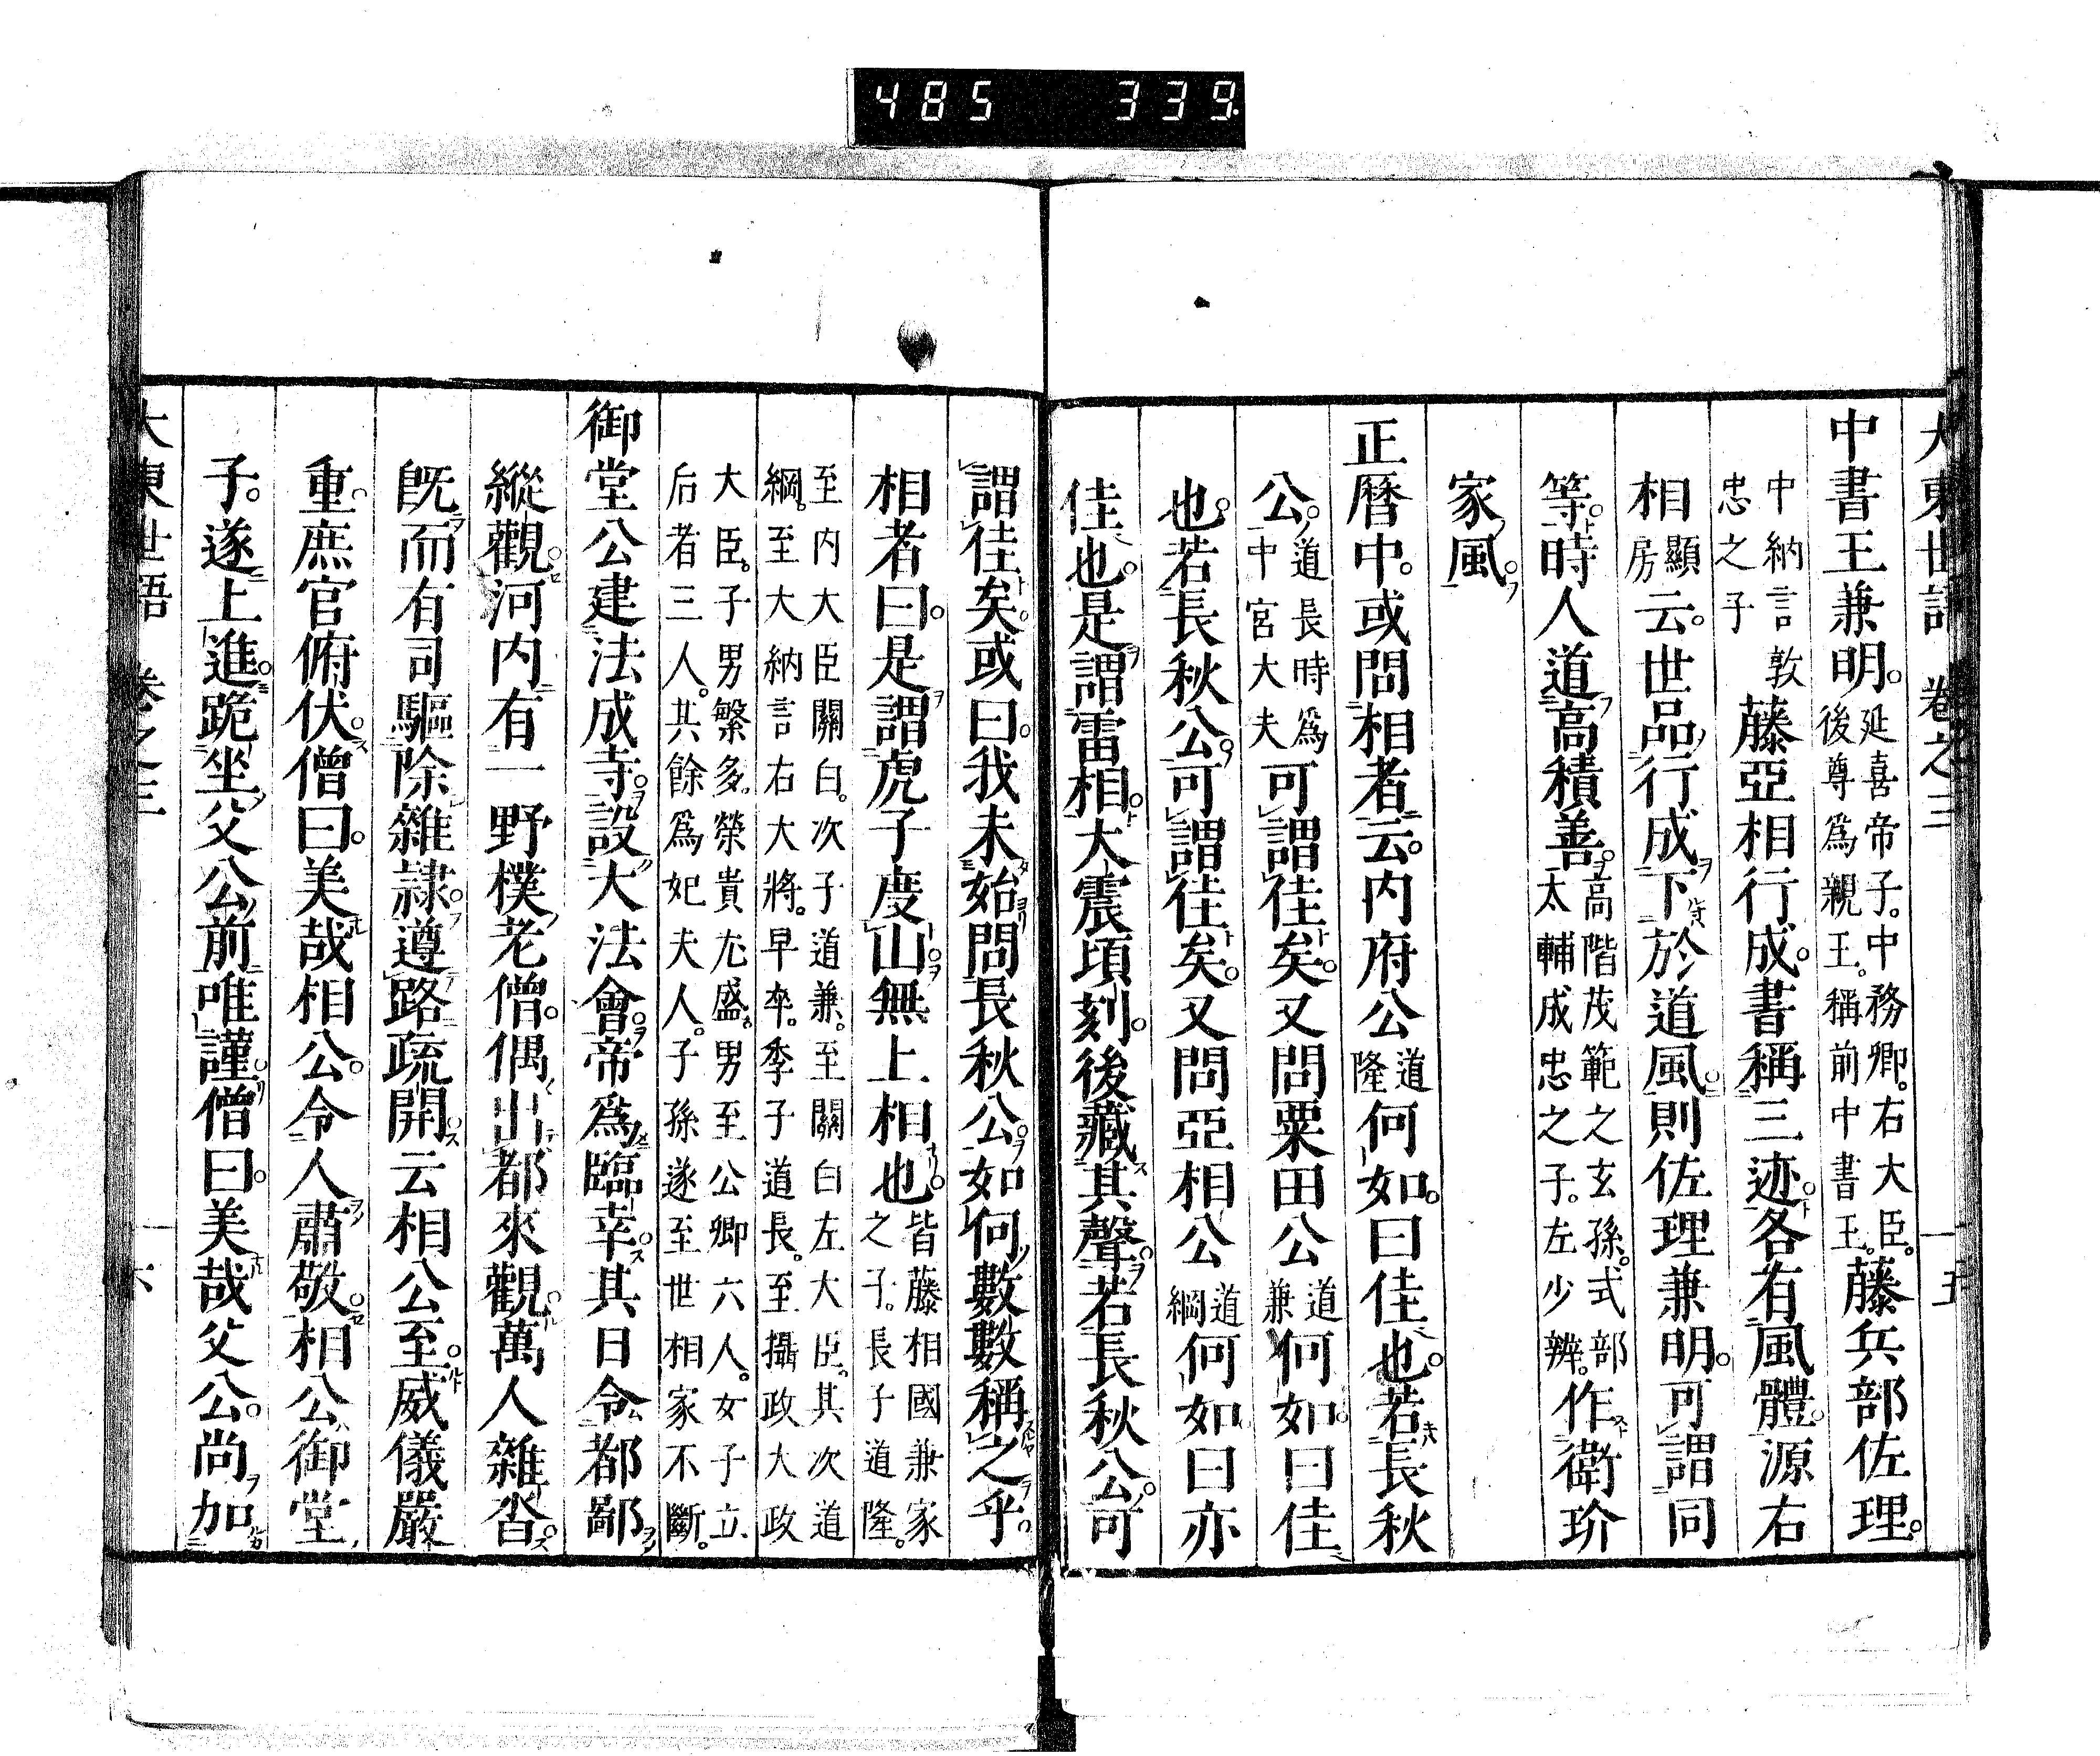 485 339
大東世語 卷之三 十五
中書王兼明。延喜帝子。中務卿。右大臣。後尊爲親王。稱前中書王。藤兵部佐理。
中納言敦忠之子藤亞相行成。書稱三迹。各有風體。源右
相顯房云。世品行成下於道風。則佐理兼明。可謂同
等。時人道高積善。高階茂範之玄孫。式部太輔成忠之子。左少辨。作衛玠
家風。
正曆中。或問相者云。内府公道隆何如。曰佳也。若長秋
公道長時爲中宮大夫可謂佳矣。又問粟田公道兼何如。曰佳
也。若長秋公。可謂佳矣。又問亞相公道綱何如。曰亦
佳也。是謂雷相。大震頃刻。後藏其聲。若長秋公。可
謂佳矣。或曰。我未始問長秋公。如何數數稱之乎。
相者曰。是謂虎子度山。無上相也。皆藤相國兼家之子。長子道隆。
至内大臣關白。次子道兼。至關白左大臣。其次道綱。至大納言右大將。早卒。季子道長。至攝政大政
大臣。子男繁多。榮貴尤盛。男至公卿六人。女子立后者三人。其餘爲妃夫人。子孫遂至世相家不斷。
御堂公建法成寺。設大法會。帝爲臨幸。其日令都鄙
縱觀。河内有一野樸老僧。偶出都來觀。萬人雜沓。
旣而有司驅除雜隷。遵路疏開。云相公至。威儀嚴
重。庶官俯伏。僧曰。美哉相公。令人肅敬。相公御堂
子。遂上進。跪坐父公前唯謹。僧曰。美哉父公。尚加
大東世語 卷之三 十六